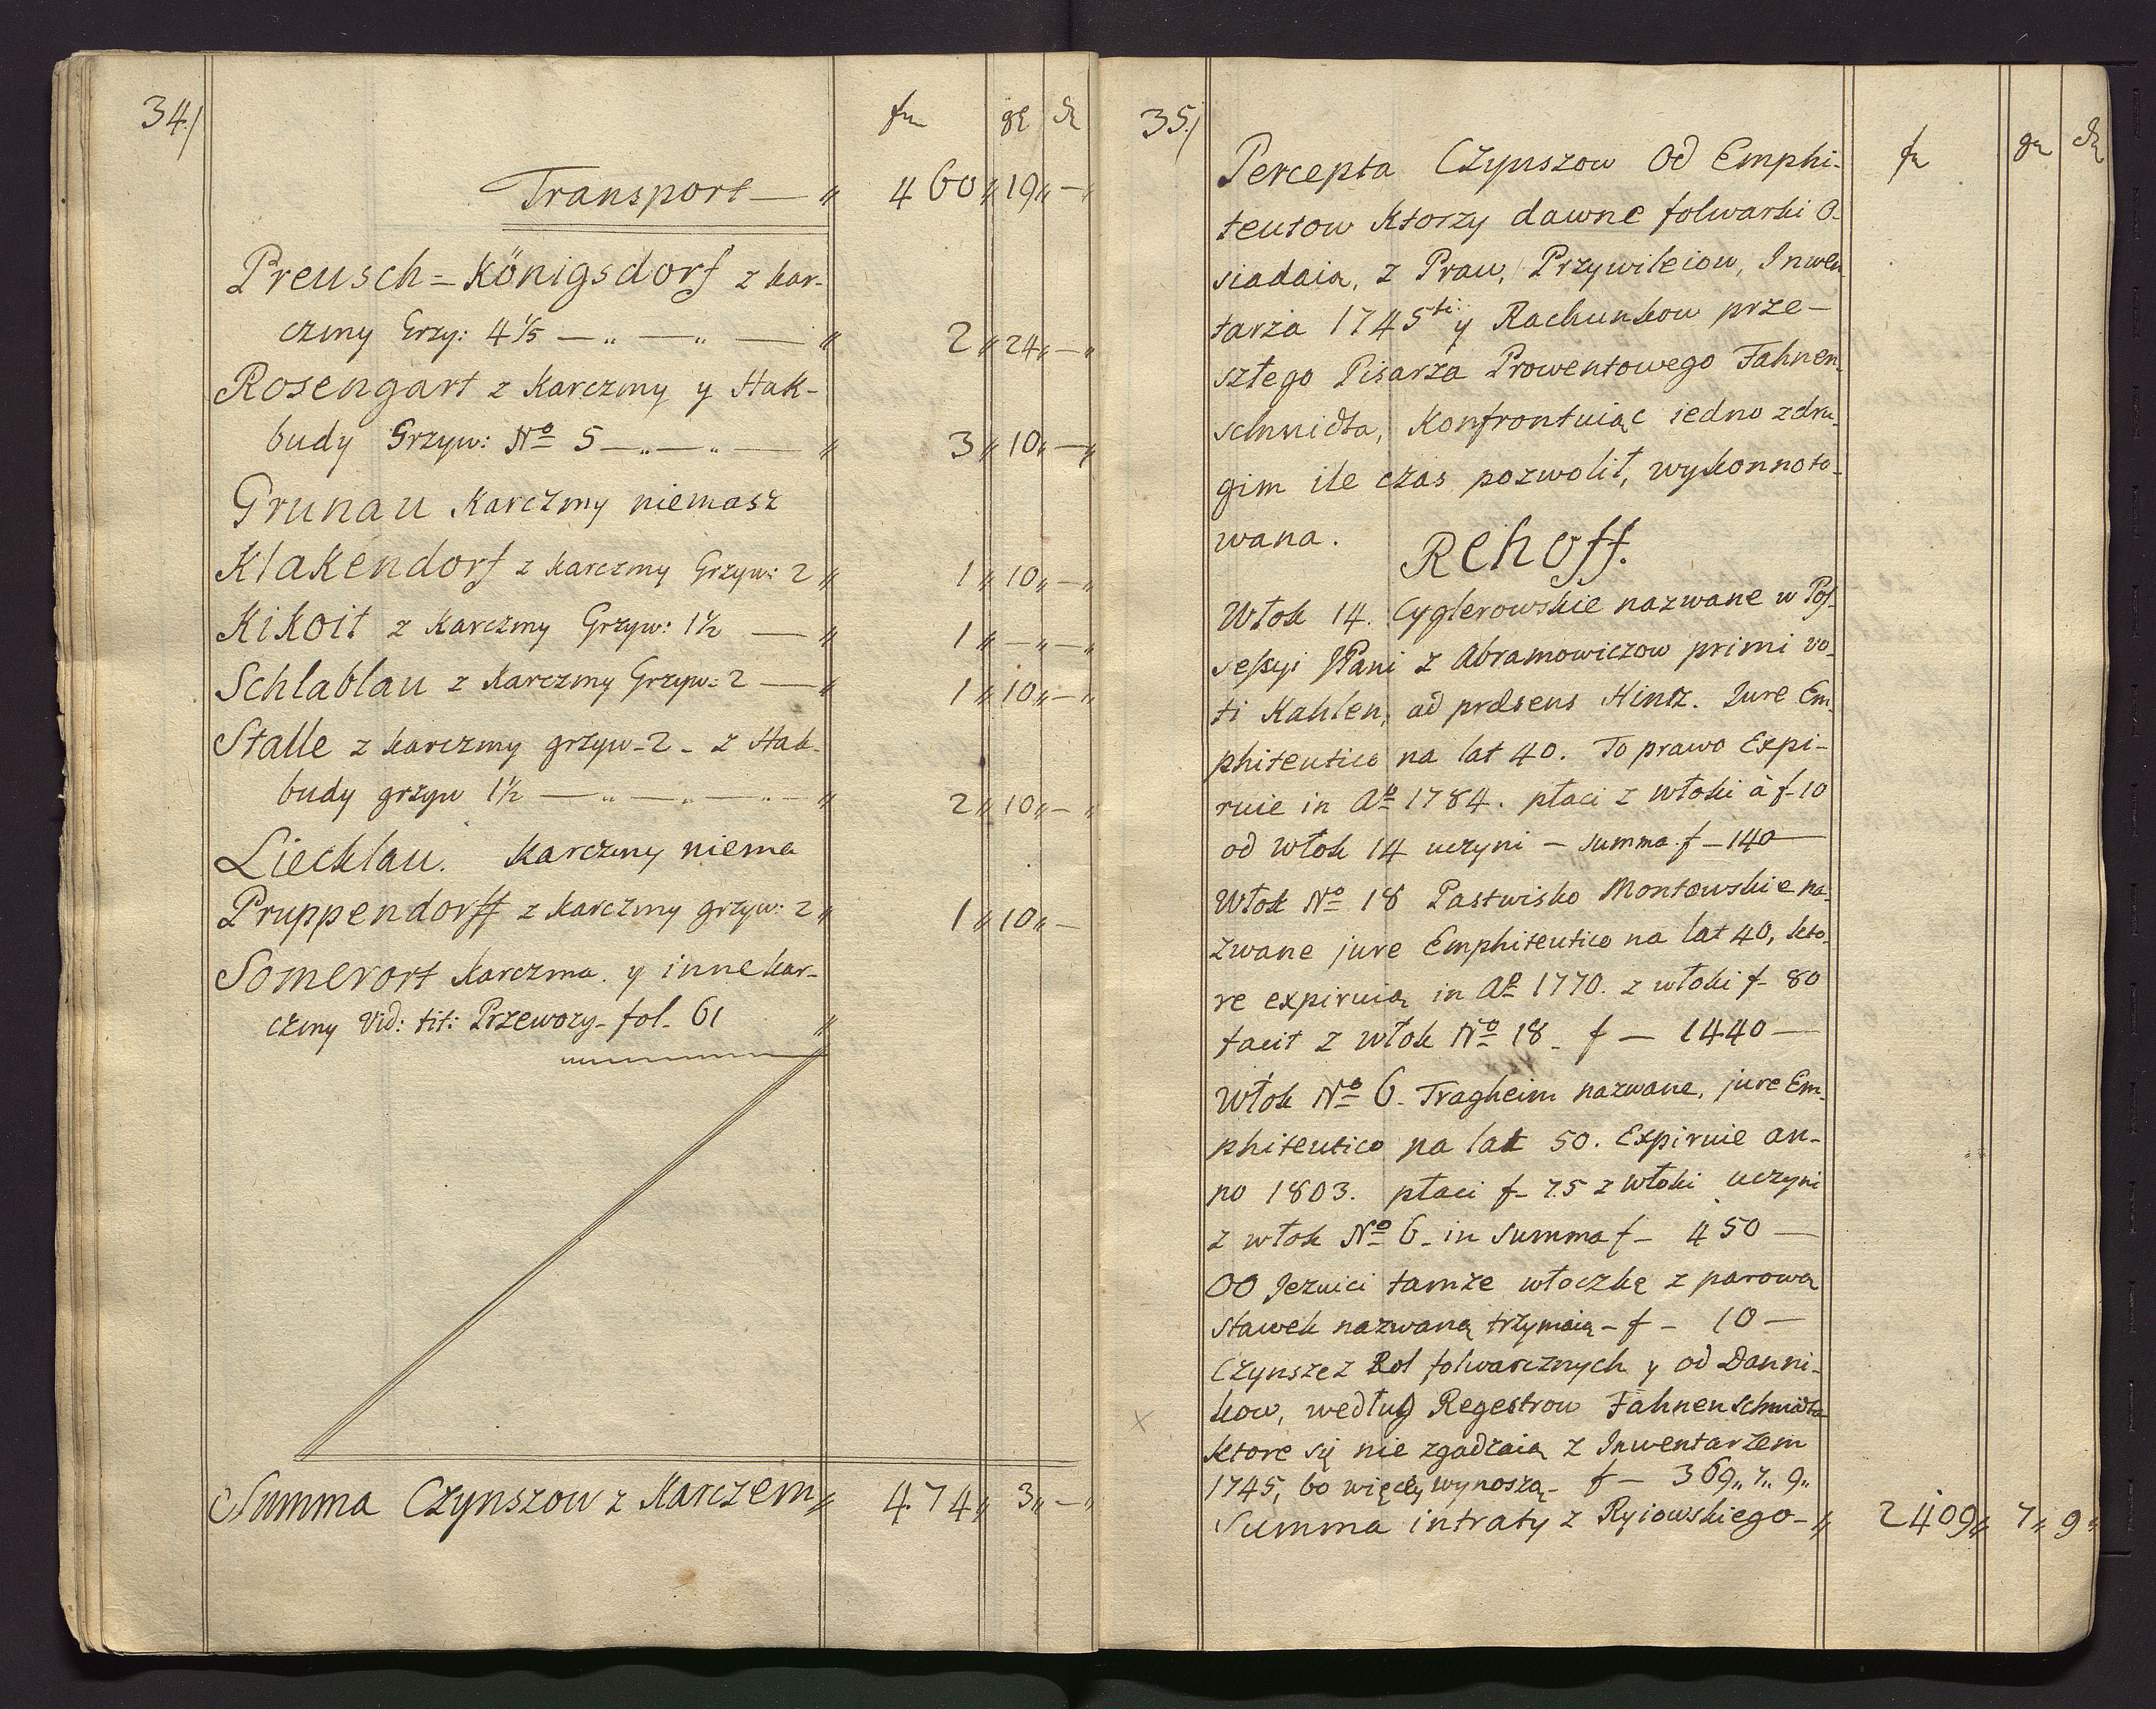 34./
fn gr d
Transport — " 460 " 19 " — "
Preusch = Königsdorf z kar-
czmy Grzy: 4 1/5 — " — " — " 2 " 24 " — "
Rosengart z Karczmy y Hak-
budy Grzyw: No 5 — " — " — " 3 " 10 " — "
Grunau Karczmy niemasz
Klakendorf z Karczmy Grzyw: 2 " 1 " 10 " — "
Kikoit z Karczmy Grzyw: 1½ — " 1 " — " — "
Schlablau z Karczmy Grzyw: 2 — " 1 " 10 " — "
Stalle z karczmy grzyw - 2 - z Hak-
budy grzyw 1½ — " — " — " — " 2 " 10 " — "
Liecklau. Karczmy niema
Pruppendorff z karczmy grzyw: 2 " 1 " 10 " —
Somerort karczma y inne kar-
czmy Vid: tit: Przewozy - fol - 61 "
Summa Czynszow z Karczem " 474 " 3 " — "
35./
fn gn d
Percepta Czynszow Od Emphi-
teutow Ktorzy dawne folwarki O-
siadaią, z Praw, Przywileiow, Inwen
tarza 1745ti y Rachunkow prze-
szłego Pisarza Prowentowego Fahnen-
schmidta, Konfrontuiąc iedno z dru-
gim ile czas pozwolił, wykonnoto-
wana.
Rehoff.
Włok 14. Cyglerowskie nazwane w Pos-
sessyi JPani z Abramowiczow primi vo-
ti Kahlen, ad præsens Hintz. Jure Em-
phiteutico na lat 40. To prawo Expi-
ruie in Ao 1784. płaci z włoki à f - 10
od włok 14 uczyni — summa f — 140 —
Włok No 18 Pastwisko Montowskie na-
zwane jure Emphiteutico na lat 40, kto-
re expiruią in Ao 1770. z włoki f - 80
facit z włok No 18 - f — 1440 —
Włok No 6 - Tragheim nazwane, jure Em-
phiteutico na lat 50. Expiruie an-
no 1803. płaci f - 75 z włoki uczyni
z włok No 6 - in Summa f - 450 —
OO Jezuici tamże włoczkę z parową
Stawek nazwaną trzymaią - f - 10 —
Czynsze z Rol folwarcznych y od Danni-
kow, według Regestrow Fahnenschmidta
ktore się nie zgadzaią z Inwentarzem
1745, bo więcey wynoszą - f — 369 " 7 " 9 "
Summa intraty z Ryiowskiego - " 2409 " 7 " 9 "